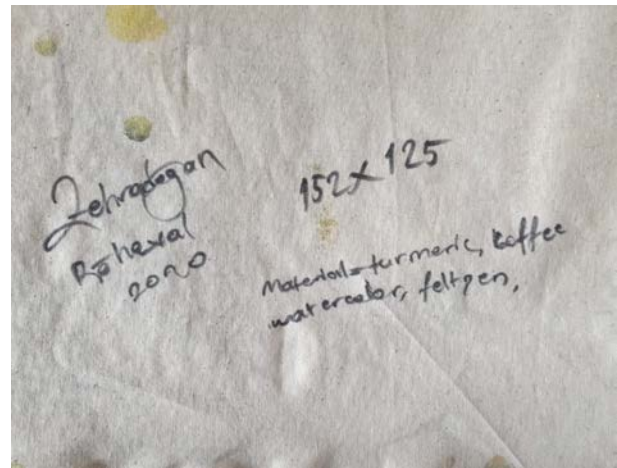 Zehradogan
Rojhaxal
2020
152x125
Material=turmeric, koffee
watercolor, feltpen,